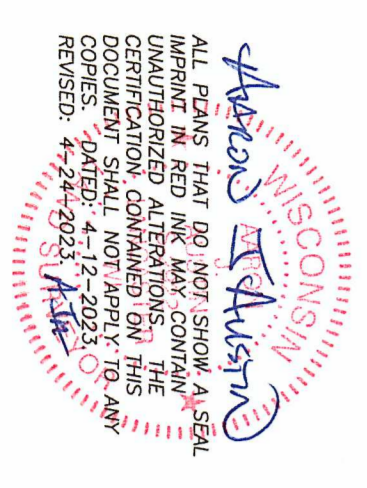 Aaron J Austin
ALL PLANS THAT DO NOT SHOW A SEAL
IMPRINT IN RED INK MAY CONTAIN
UNAUTHORIZED ALTERATIONS. THE
CERTIFICATION CONTAINED ON THIS
DOCUMENT SHALL NOT APPLY TO ANY
COPIES. DATED: 4-12-2023.
REVISED: 4-24-2023.
WISCONSIN
AARON
J
AUSTIN
SURVEYOR